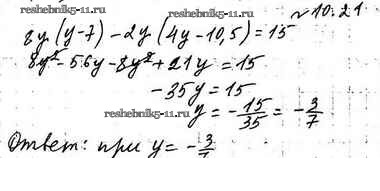 reshebnik5-11.ru
№10.21
8y(y-7)-2y(4y-10,5)=15
8y²-56y-8y²+21y=15
-35y=15
reshebnik5-11.ru
y=-15/35=-3/7
reshebnik5-11.ru
Ответ: при y=-3/7